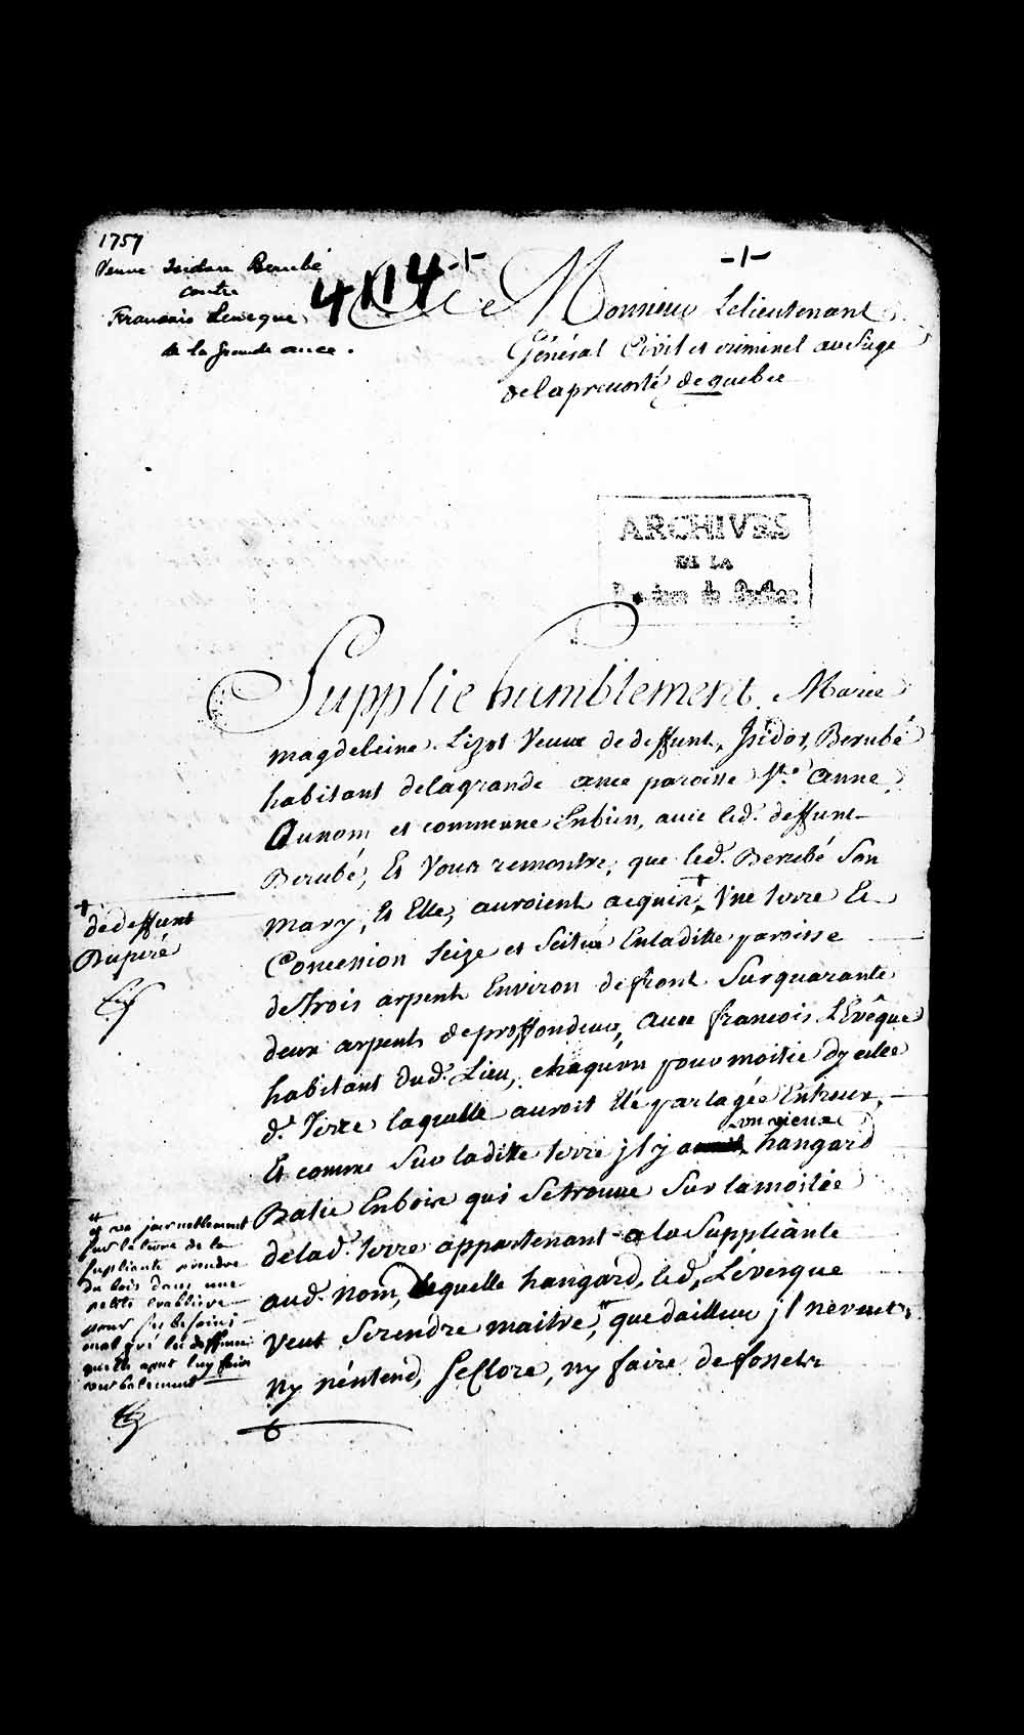 1757
Veuve Isidore Berubé
contre
Francois Levesque
de la grande ance.
4114
A
Monsieur Lelieutenant
Général Civil et criminel au Siege
de la prevosté de quebec
ARCHIVES
DE LA
Supplie humblement Marie
magdeleine Lizot Veuve de deffunt, Isidor, Berubé
habitant delagrande ance paroisse Ste. anne
Aunom et commune Enbien, avec led. deffunt
Berubé, Et Vous remontre, que led. Berubé Son
mary, Et Elle, auroient acquis + Une terre Et
Concession Seize et Scitue Enladitte paroisse
de trois arpents Environ defront Surquarante
deux arpents deproffondeur, avec francois LEvêque
habitant Dud. Lieu, chaqu'un pour moitie dycelle
d. Terre laquelle auroit Eté partagée Entreux,
un vieux
Et comme Sur laditte terre jl y a hangard
Batie Enbois qui Setrouve Sur lamoitée
delad. terre appartenant a la Suppliante
aud. nom, lequelle hangard, led. Lévesque
Veut Serendre maitre, # quedailleur jl neveut,
ny n'entend, SeClore, ny faire defossets
+
dedeffunt
Dupéré
#
et va journellement
sur la terre de la
supliante prendre
du bois dans une
petite Erabliere
pour ses besoins
mal gré les deffenses
quelle aput luy faire
verbalement